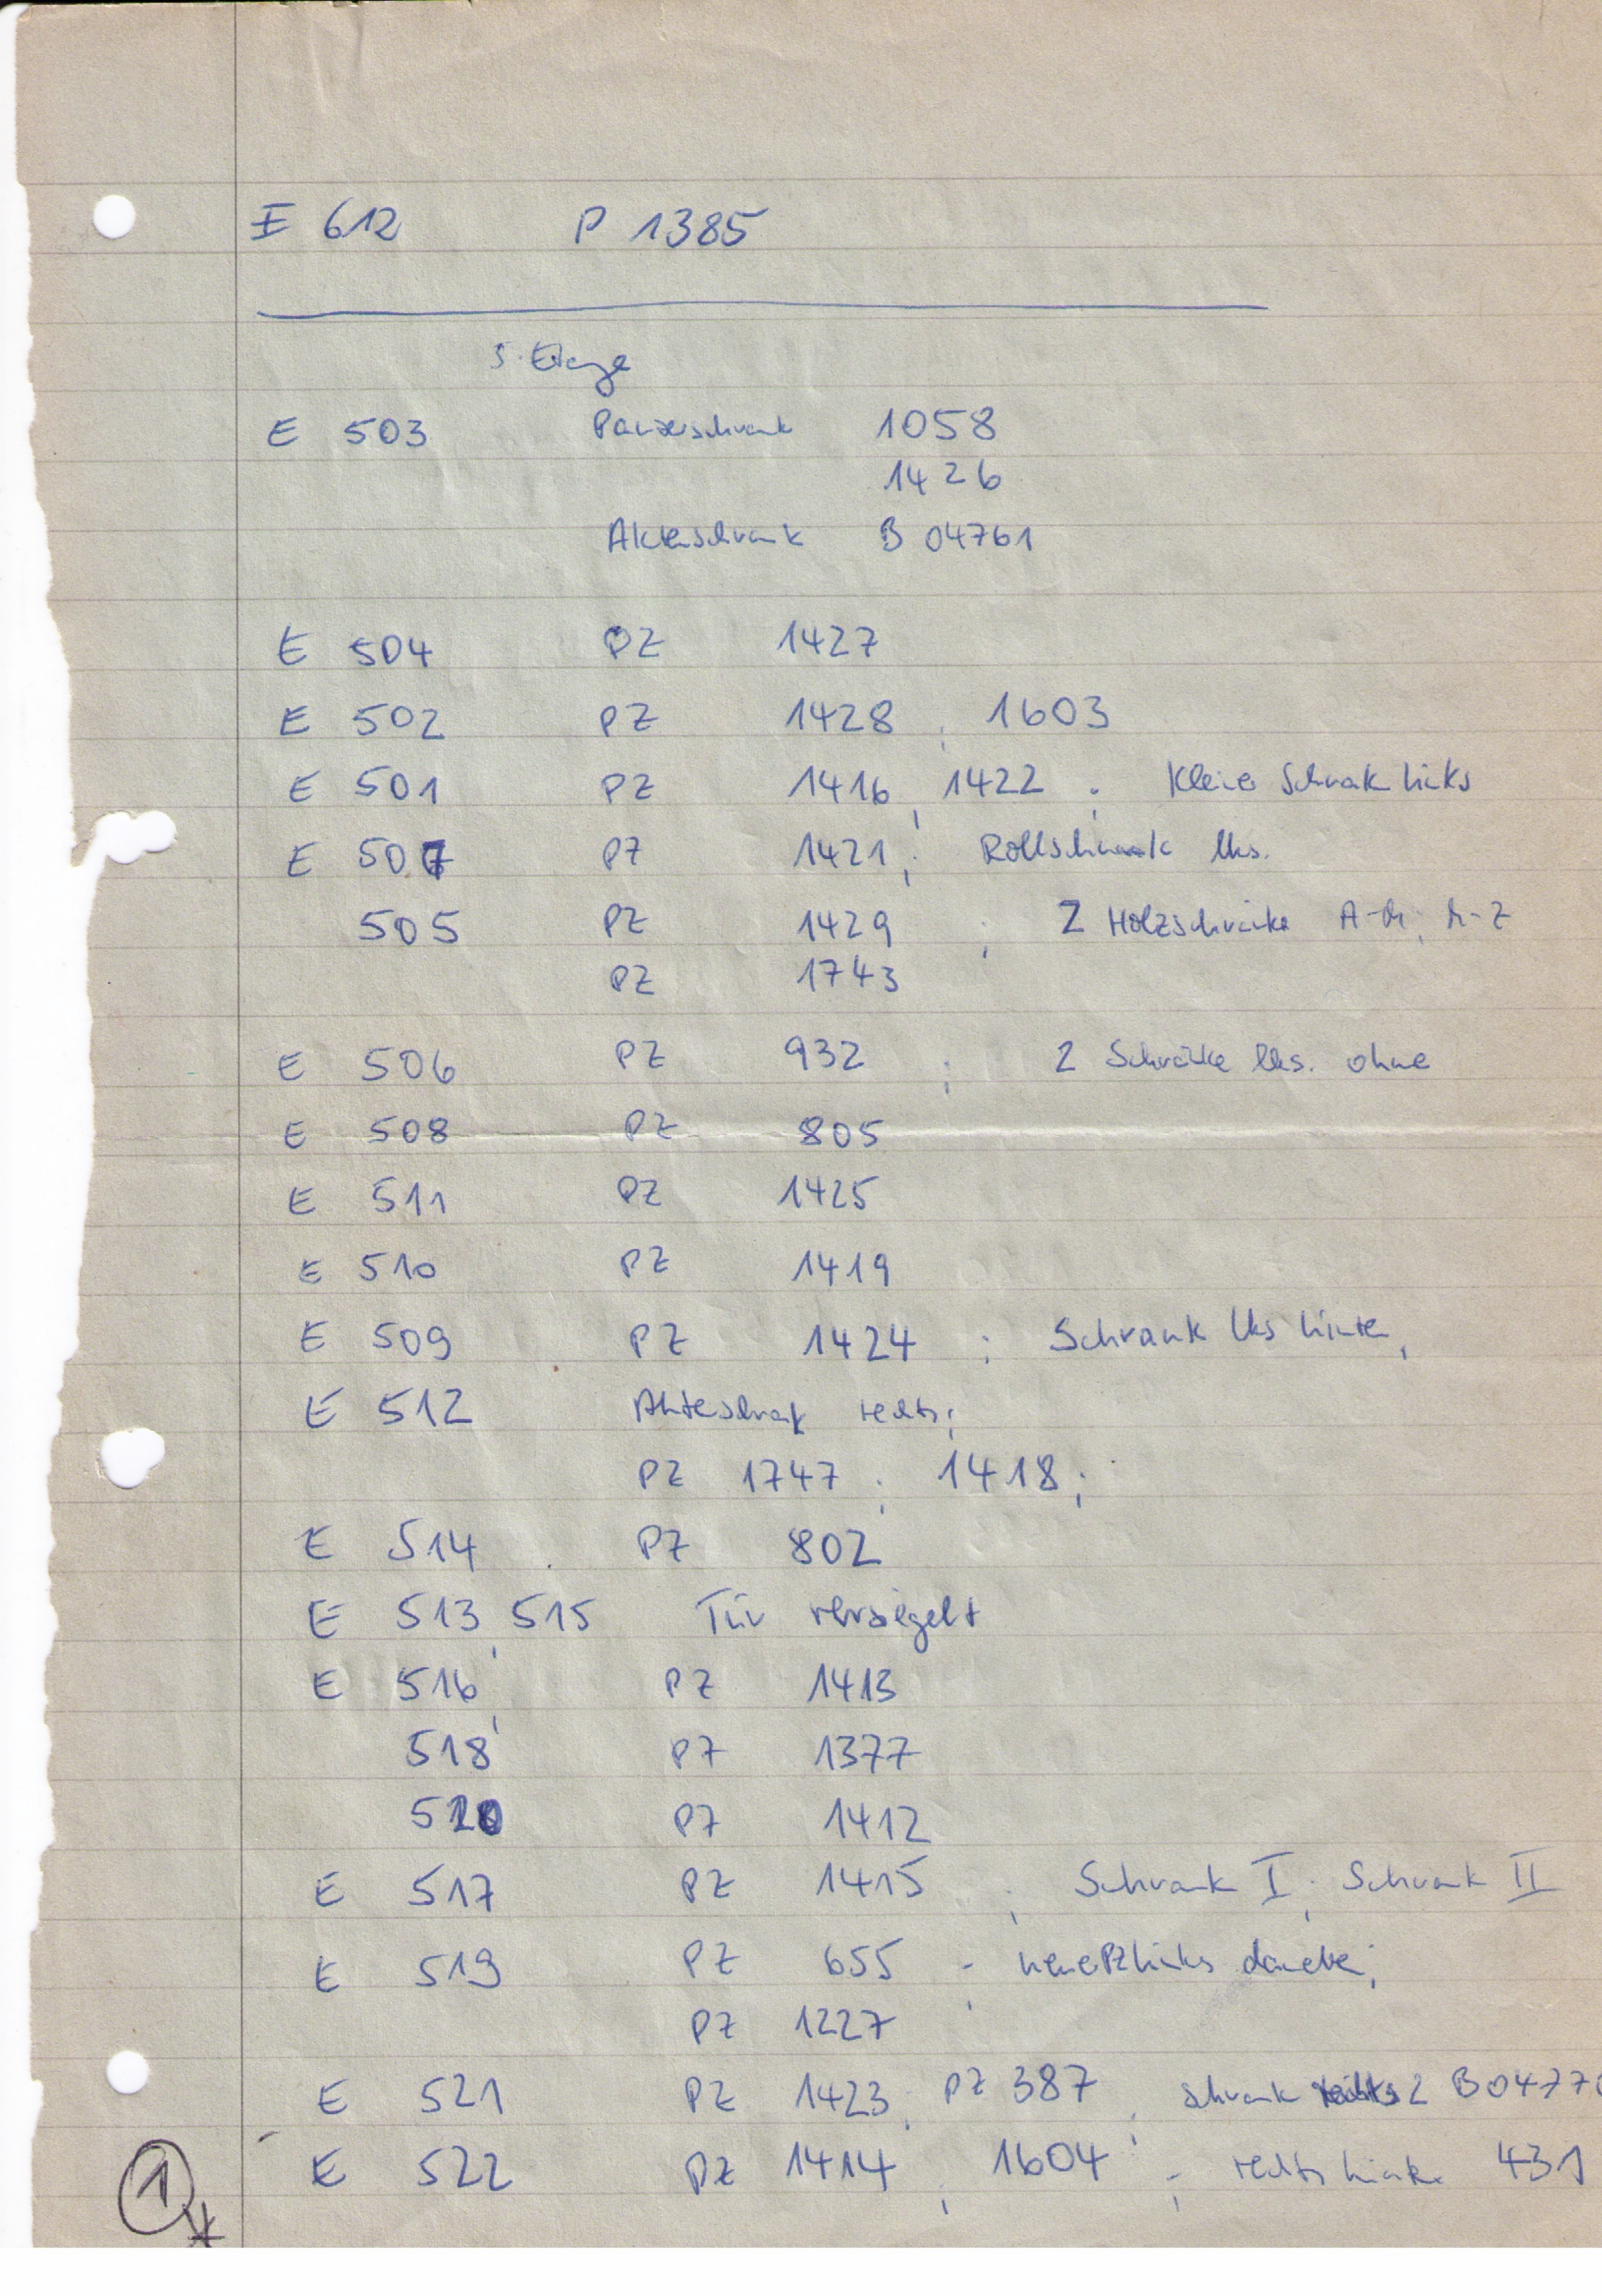 E 612 P 1385
5. Etage
E 503 Panzerschrank 1058
1426
Aktenschrank B 04761
E 504 PZ 1427
E 502 PZ 1428 ; 1603
E 501 PZ 1416 , 1422 ; Kleiner Schrank links
E 507 PZ 1421 ; Rollschrank lks.
505 PZ 1429 ; 2 Holzschränke A-M; M-Z
PZ 1743
E 506 PZ 932 ; 2 Schränke lks. ohne
E 508 PZ 805
E 511 PZ 1425
E 510 PZ 1419
E 509 PZ 1424 ; Schrank lks hinten,
E 512 Aktenschrank rechts;
PZ 1747 ; 1418 ;
E 514 PZ 802
E 513, 515 Tür versiegelt
E 516, PZ 1413
518 PZ 1377
520 PZ 1412
E 517 PZ 1415 ; Schrank I ; Schrank II
E 519 PZ 655 ; neue PZ links daneben;
PZ 1227
E 521 PZ 1423, PZ 387 ; schrank 2 B 0477
E 522 PZ 1414 ; 1604 ; rechts 431
1